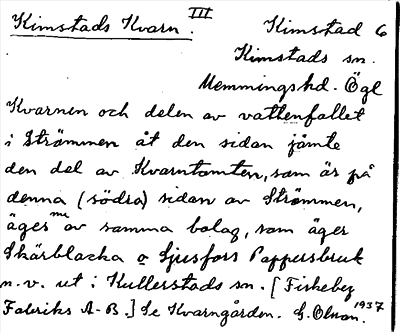 Kimstads Kvarn. III Kimstad 6
Kimstads sn.
Memmings hd. Ögl
Kvarnen och delen av vattenfallet
i Strömmen åt den sidan jämte
den del av Kvarntomten, som är på
denna (södra) sidan av Strömmen,
äges nu av samma bolag, som äger
Skärblacka o Ljusfors Pappersbruk
n.v. ut i Kullerstads sn. [Fiskeby
Fabriks A-B.] Se Kvarngården. 1937